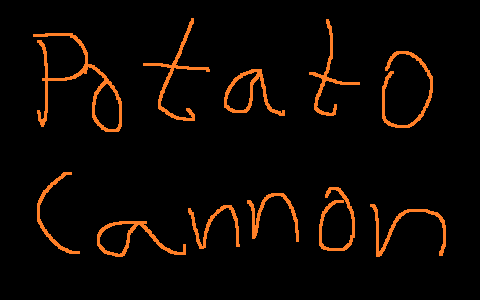 Potato
Cannon